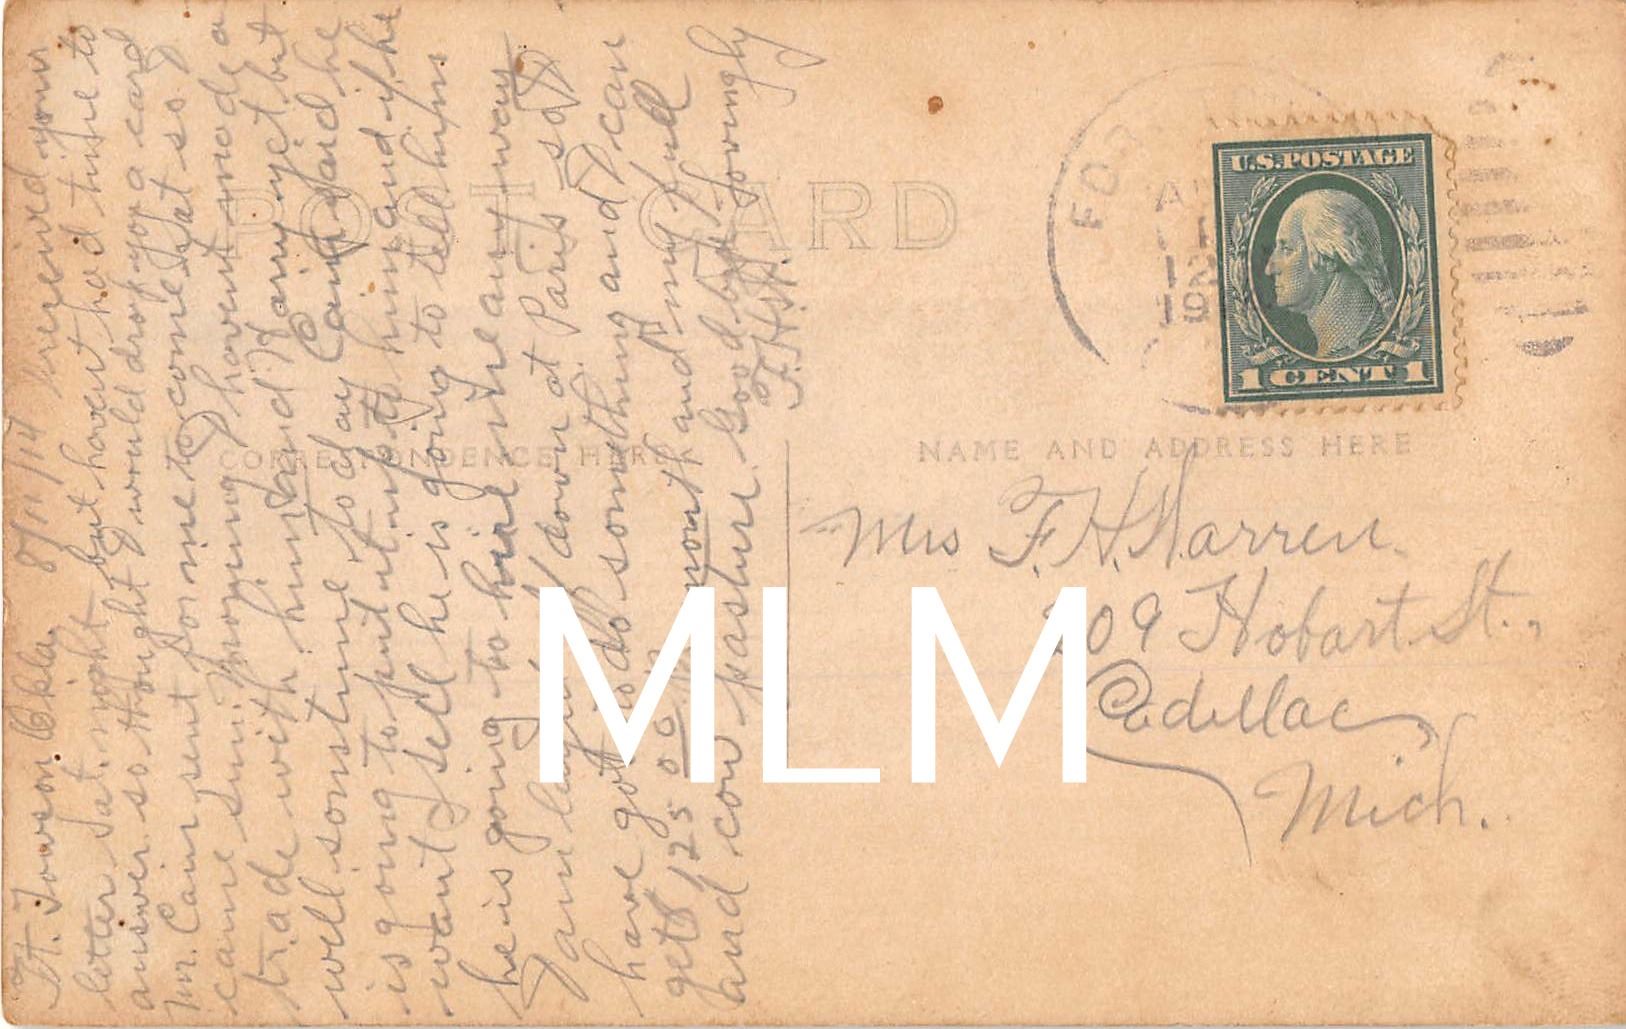 Ft. Towson Okla. 8/11/14 received your
letter Sat. night but havent had time to
answer. so thought would drop you a card
Mr. Cain sent for me to come Sat so
came Sun. Morning havent made a
trade with him and Harry yet but
will sometime today Cain said he
is going to put it up to him and if he
want sell he is going to tell him
he is going to hire me any way
I am laying down at Paris so I
have got to do something and I can
get 125 00 month and my full
and cow pasture. Good bye Lovingly
F.H.W.
POST CARD
CORRESPONDENCE HERE
NAME AND ADDRESS HERE
U.S. POSTAGE
1 CENT 1
Mrs F. H. Warren.
209 Hobart St.,
Cadillac,
Mich.
MLM